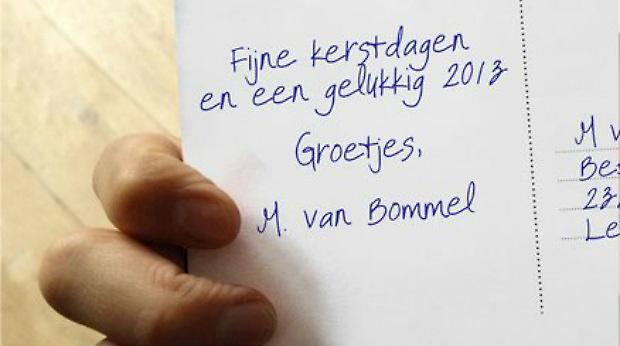 Fijne kerstdagen
en een gelukkig 2013
Groetjes,
M. van Bommel
M v
Bes
23
Le